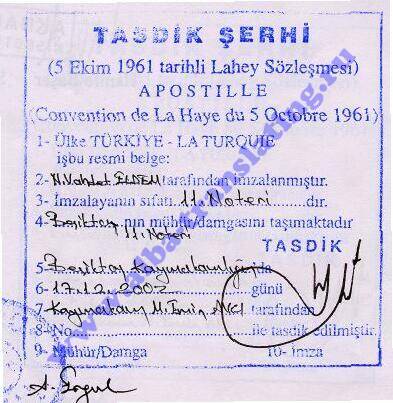 TASDİK ŞERHİ
(5 Ekim 1961 tarihli Lahey Sözleşmesi)
APOSTILLE
(Convention de La Haye du 5 Octobre 1961)
1- Ülke TÜRKİYE - LA TURQUIE
işbu resmi belge:
2- tarafından imzalanmıştır.
3- İmzalayanın sıfatı 11. Noteri dır.
4- Beşiktaş nın mühür/damgasını taşımaktadır
11. Noteri
TASDİK
5- Beşiktaş Kaymakamlığı da
6- 17.12.2002 günü
7- Kaymakam M. Emin AVCI tarafından
8- No ile tasdik edilmiştir.
9- Mühür/Damga 10- İmza
www.albatranslating.hu